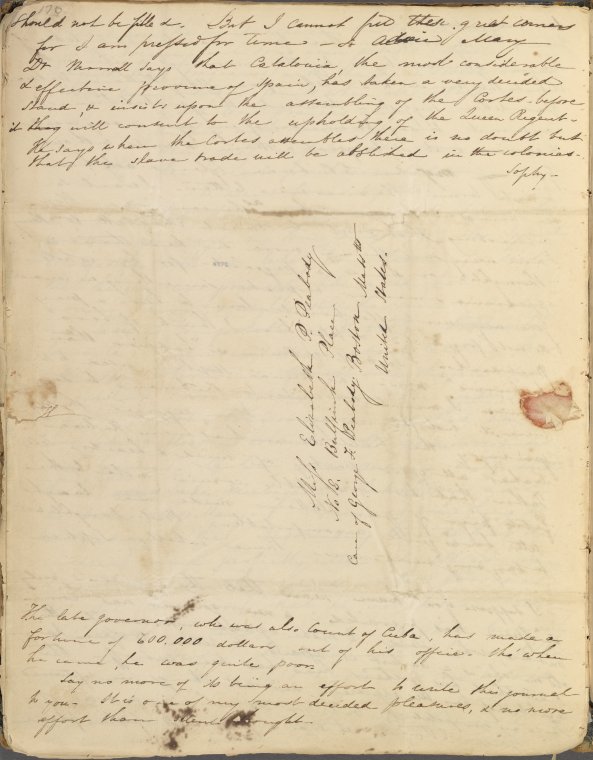 should not be filled. But I cannot fill these great corners
for I am pressed for time — Adieu Mary
Dr. says that Catalonia, the most considerable
& effective province of Spain, has taken a very decided
stand, & insists upon the assembling of the Cortes before
it they will consent to the upholding of the Queen Regent.
He says when the Cortes assembles there is no doubt but
that the slave trade will be abolished in the colonies.
Sophy —
Miss Elizabeth P. Peabody
Bulfinch Place
Care of George F. Peabody Boston Massts
United States.
The late governor, who was also Count of Cuba, has made a
fortune of 600,000 dollars out of his office. tho when
he came, he was quite poor.
Say no more of its being an effort to write this journal
to you. It is one of my most decided pleasures, & no more
effort than thought.